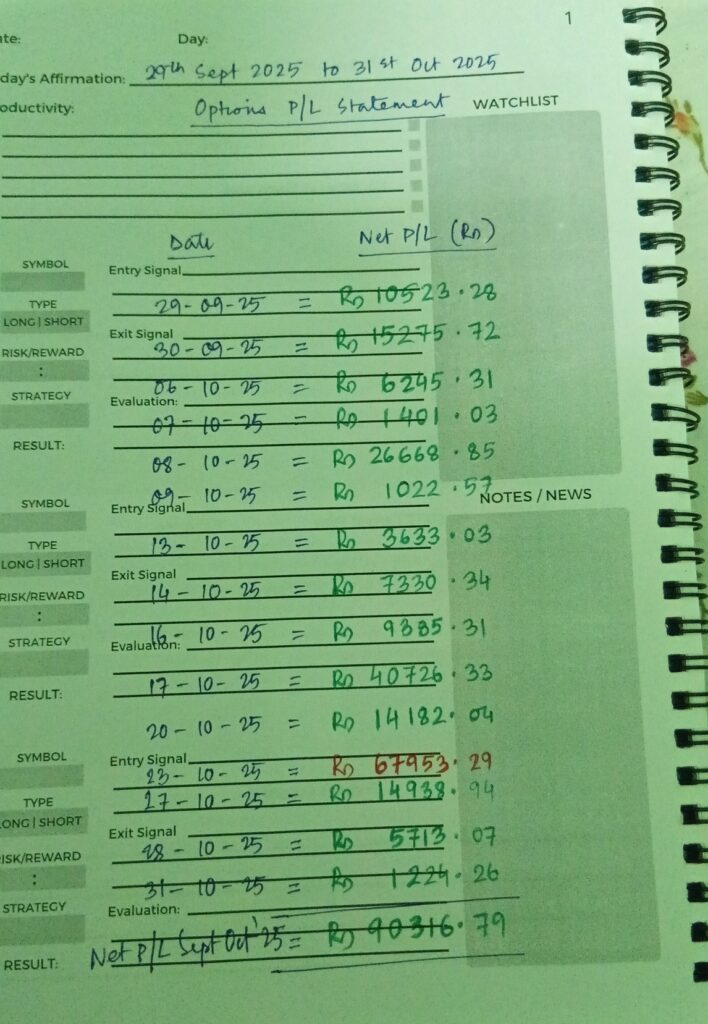 1
ate: Day:
day's Affirmation: 29th Sept 2025 to 31st Oct 2025
oductivity: Options P/L Statement WATCHLIST
Date Net P/L (Rs)
SYMBOL Entry Signal
29-09-25 = Rs 10523.28
TYPE
LONG | SHORT Exit Signal
30-09-25 = Rs 15275.72
RISK/REWARD
:
06-10-25 = Rs 6245.31
STRATEGY Evaluation:
07-10-25 = Rs 1401.03
RESULT:
08-10-25 = Rs 26668.85
09-10-25 = Rs 1022.57
SYMBOL Entry Signal NOTES / NEWS
13-10-25 = Rs 3633.03
TYPE
LONG | SHORT Exit Signal
14-10-25 = Rs 7330.34
RISK/REWARD
:
16-10-25 = Rs 9385.31
STRATEGY Evaluation:
17-10-25 = Rs 40726.33
RESULT:
20-10-25 = Rs 14182.04
SYMBOL Entry Signal
23-10-25 = Rs 67953.29
27-10-25 = Rs 14938.94
TYPE
ONG | SHORT Exit Signal
28-10-25 = Rs 5713.07
ISK/REWARD
:
31-10-25 = Rs 1224.26
STRATEGY Evaluation:
Net P/L Sept Oct'25 = Rs 90316.79
RESULT: